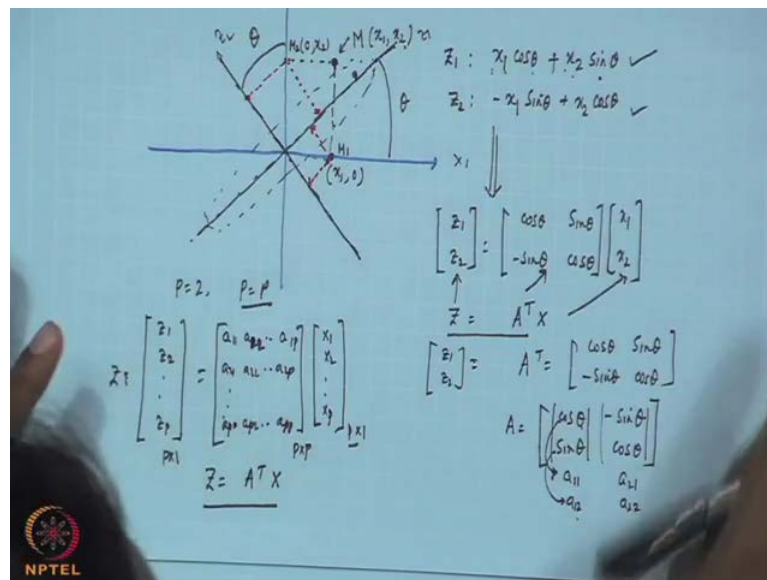 θ M₂(0,x₂) M(x₁,x₂)
θ
x₁
M₁
(x₁,0)
Z₁ : x₁ cosθ + x₂ Sinθ ✓
Z₂ : -x₁ Sinθ + x₂ cosθ ✓
[z₁ z₂] = [cosθ Sinθ -Sinθ cosθ] [x₁ x₂]
Z = Aᵀ X
[z₁ z₂] = Aᵀ = [cosθ Sinθ -Sinθ cosθ]
A = [cosθ -Sinθ
Sinθ cosθ]
a₁₁ a₂₁
a₁₂ a₂₂
P=2, P=P
z₁ a₁₁ a₁₂ .. a₁p x₁
Z = z₂ = a₂₁ a₂₂ .. a₂p x₂
⋮ ⋮ ⋮
zp ap₁ ap₂ .. app xp
p×1 p×p p×1
Z = Aᵀ X
NPTEL